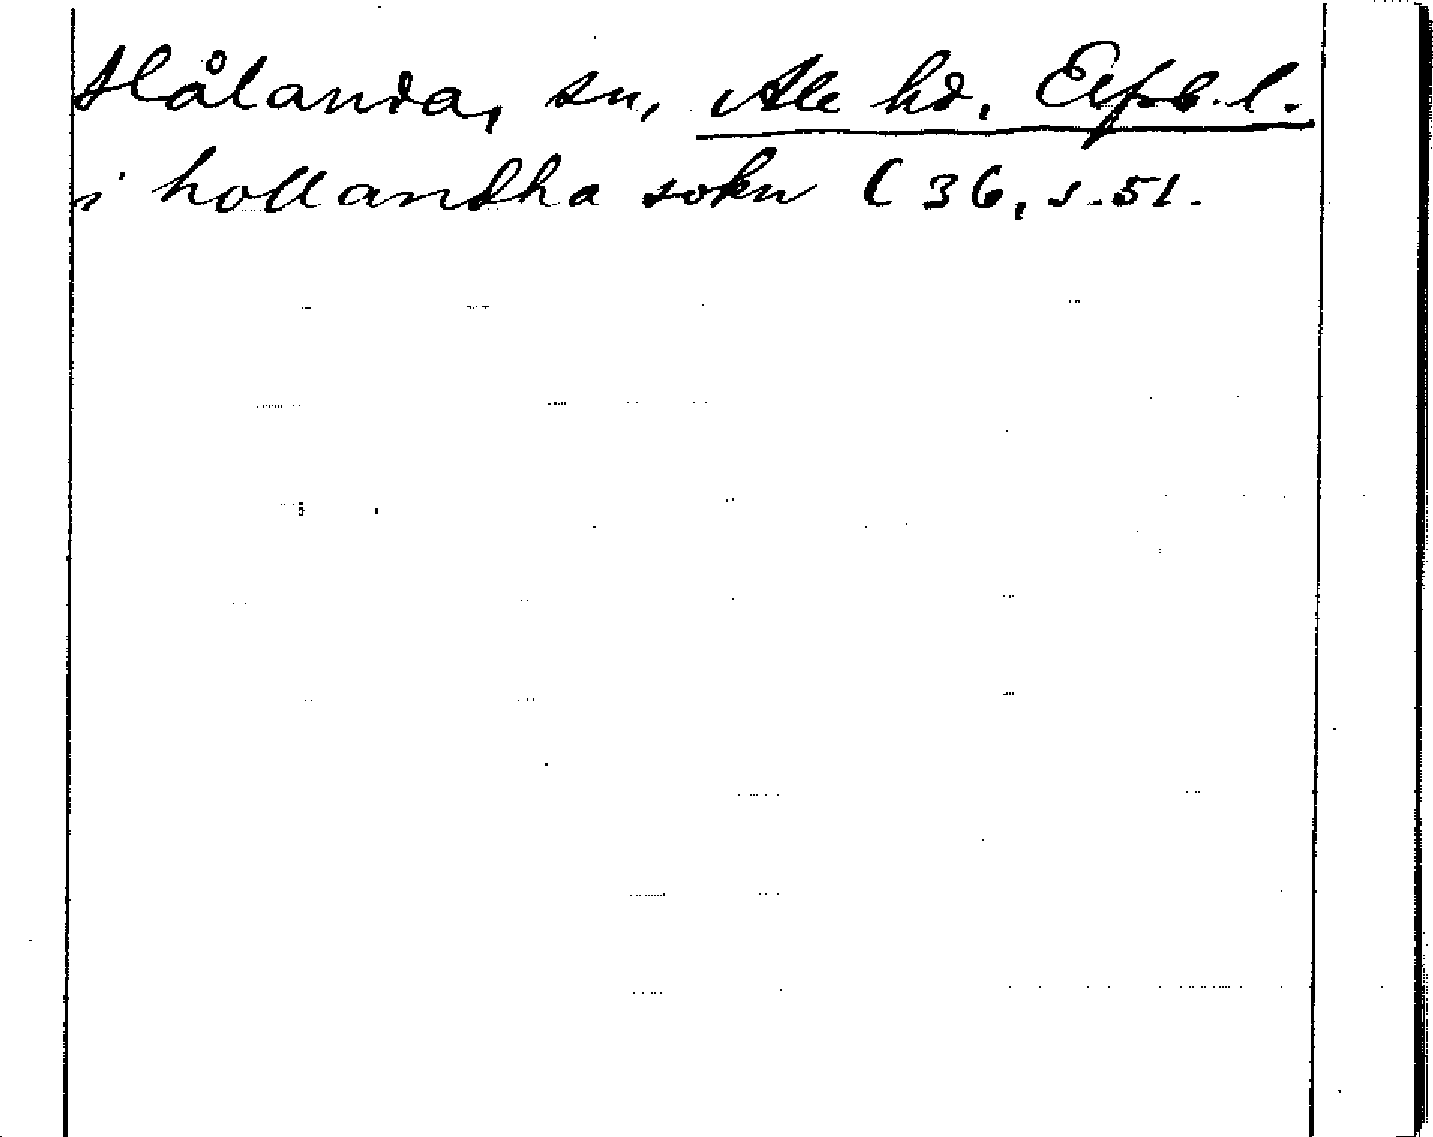 Hålanda, sn, Ale hd, Elfsb. l.
i hollandha sokn C 36, s. 51.